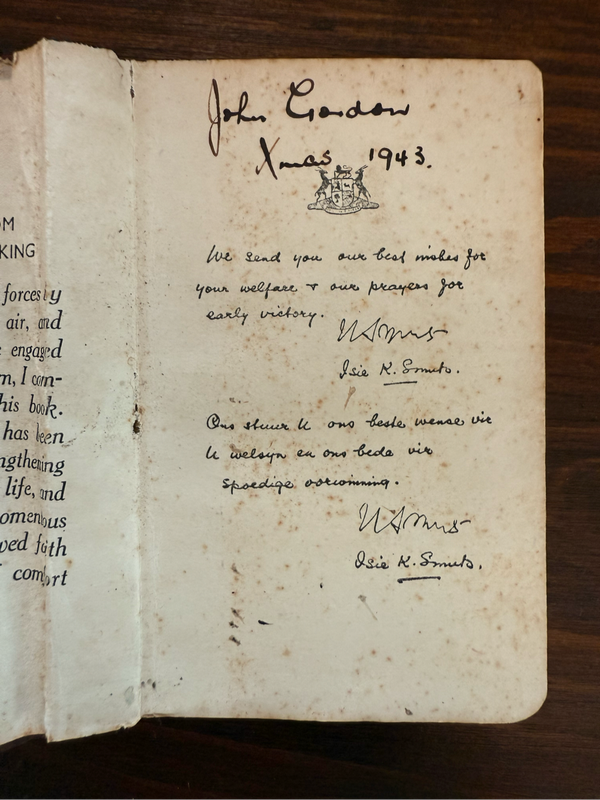 OM
KING
forces by
air, and
engaged
m, I com-
his book.
has been
ngthening
life, and
omentous
wed faith
comfort
John Gordon
Xmas 1943.
We send you our best wishes for
your welfare & our prayers for
early victory.
Isie K. Smuts.
Ons stuur U ons beste wense vir
U welsyn en ons bede vir
spoedige oorwinning.
Isie K. Smuts.